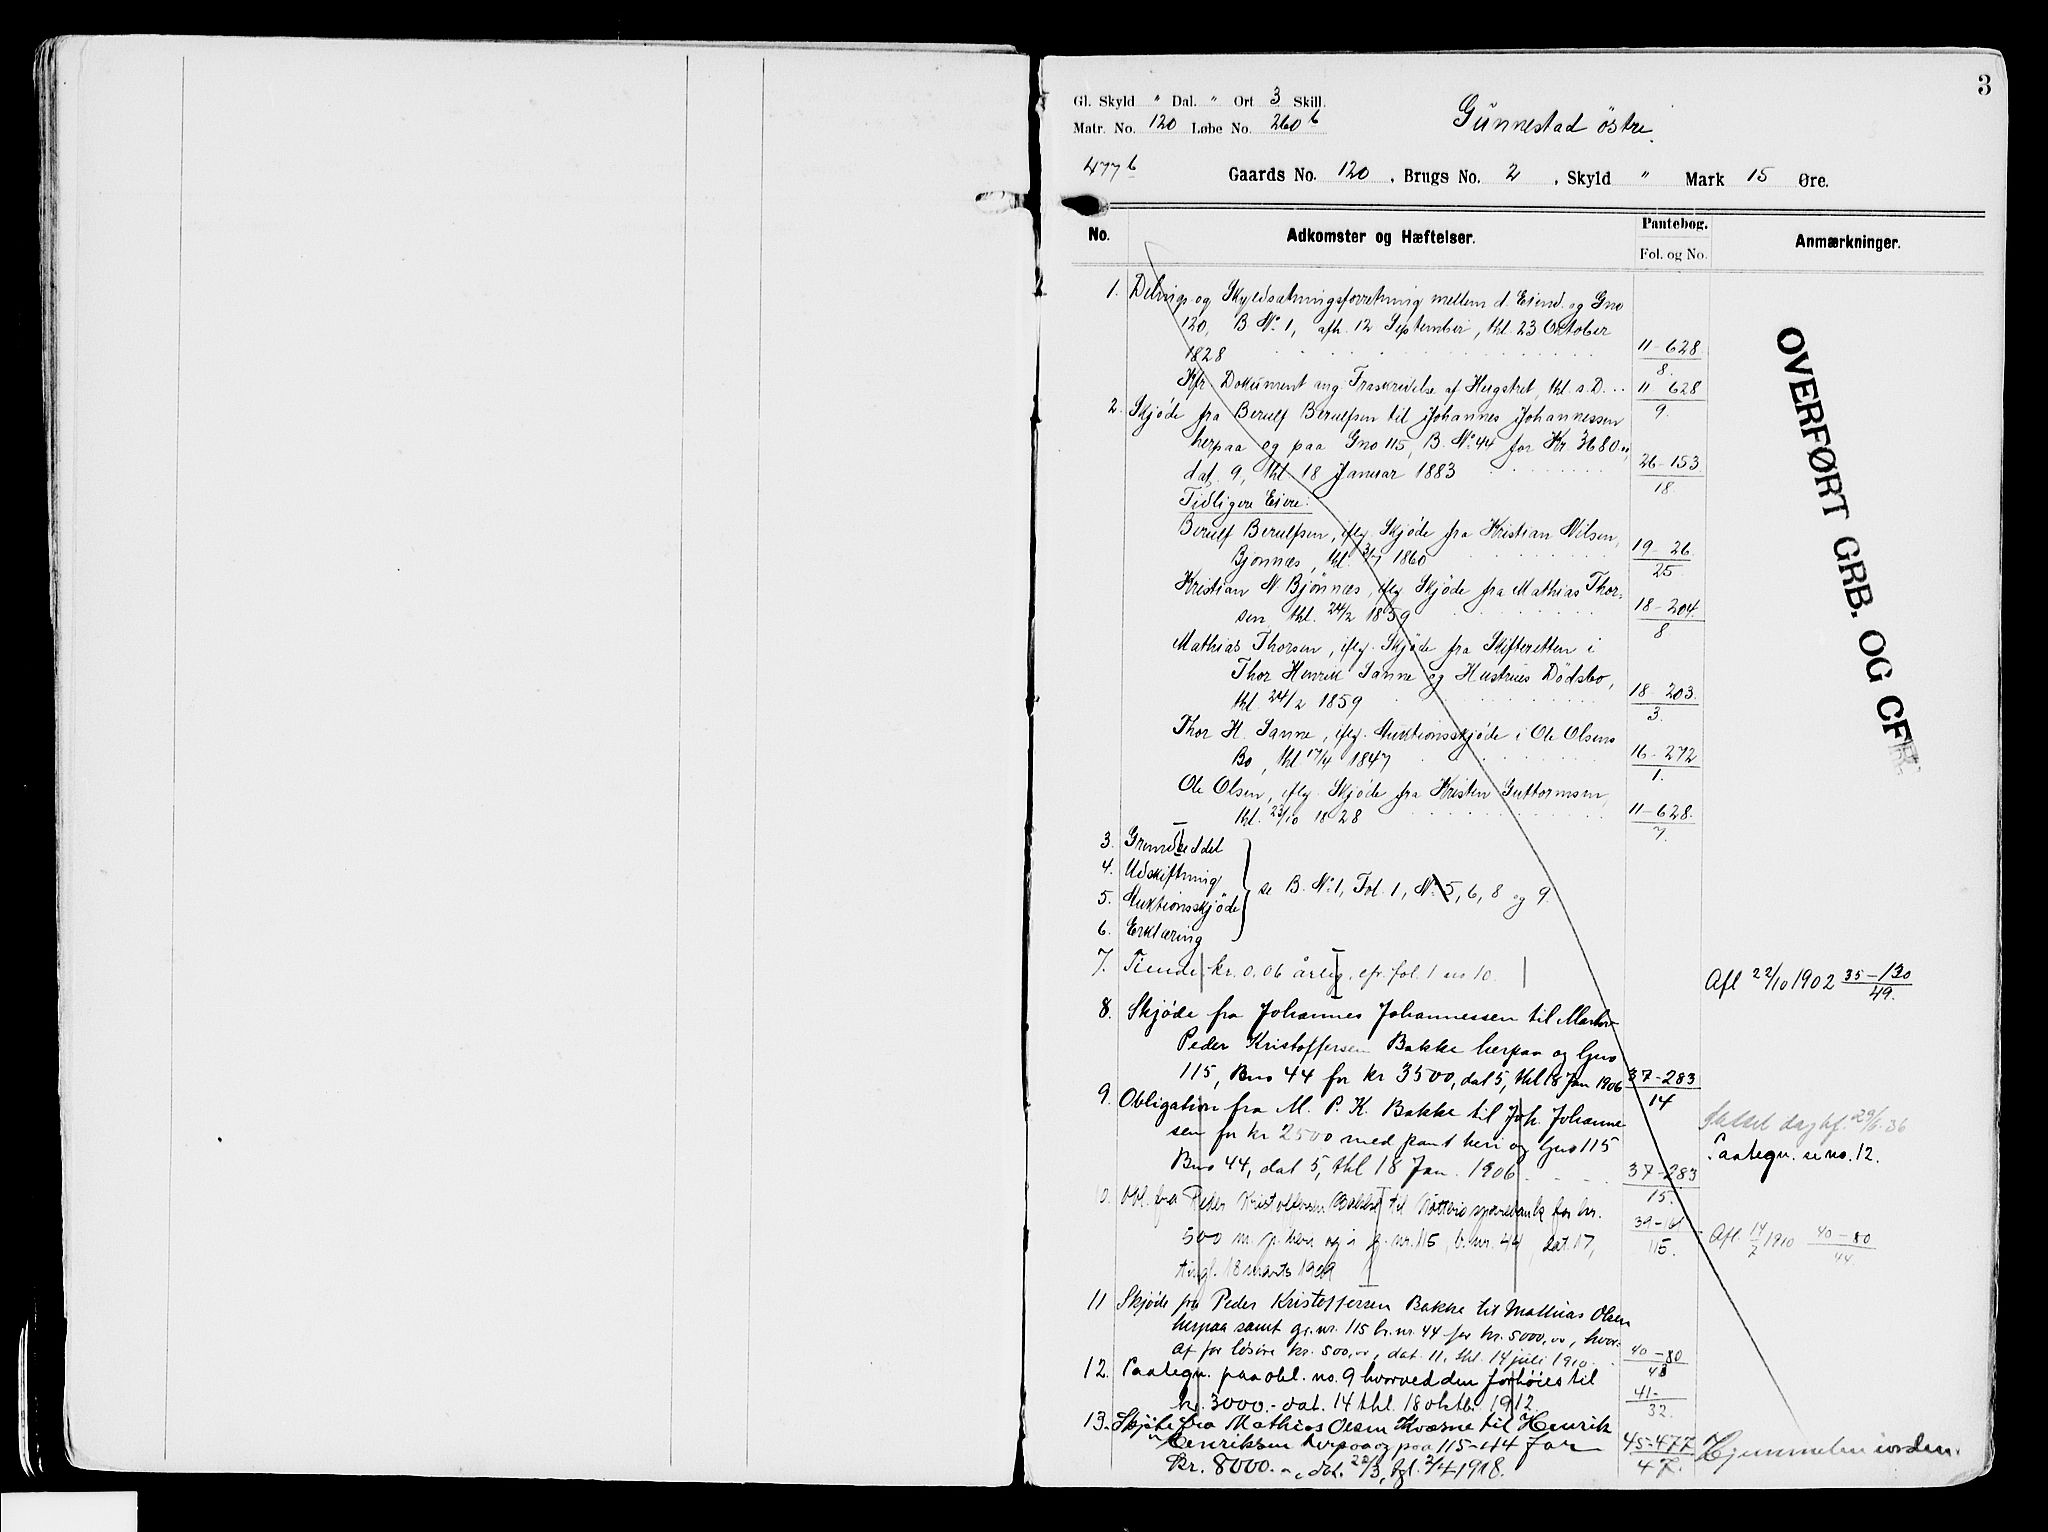 3
Gl. Skyld " Dal. " Ort 3 Skill.
Matr. No. 120 Løbe No. 260 b
Gunnestad östre.
477 b
Gaards No. 120 , Brugs No. 2 , Skyld " Mark 15 Øre.
No. Adkomster og Hæftelser. Pantebog. Fol. og No. Anmærkninger.
1. Delings og Skyldsætningsforretning mellem d. Eiend. og Gno
120, B No 1, afh. 12 September, thl. 23 Oktober
1828 11-628/8.
Kfr. Dokument ang. Fraskrivelse af Hugstret, thl. s. D. 11-628/9.
2. Skjøde fra Berulf Berulfsen til Johannes Johannessen
herpaa og paa Gno 115, B. No 44 for Kr. 3680
dat. 9, thl 18 Januar 1883 26-153/18.
Tidligere Eiere:
Berulf Berulfsen, iflg. Skjøde fra Kristian Nilsen,
Bjønnes, thl. 3/7 1860 19-26/25.
Kristian N Bjønnes, iflg Skjøde fra Mathias Thor-
sen, thl. 24/2 1859 18-204/8
Mathias Thorsen, iflg. Skjøde fra Skifteretten i
Thor Henrik Sanne og Hustrues Dödsbo,
thl. 24/2 1859 18-203/3.
Thor H. Sanne, iflg. Auktionsskjøde i Ole Olsens
Bo, thl 17/4 1847 16-272/1.
Ole Olsen, iflg. Skjøde fra Kristen Guttormsen,
thl. 23/10 1828 11-628/7.
3. Grundseddel
4. Udskiftning
5. Auktionsskjöde
6. Erklæring
se B. No 1, Fol. 1, No. 5, 6, 8 og 9.
7. Tiende kr. 0.06 årlig, cfr. fol. 1 no 10. Afl 22/10 1902 35-130/49.
8. Skjøde fra Johannes Johannessen til
Peder Kristoffersen Bakke herpaa og Gno
115, Bno 44 for kr 3500, dat 5, thl 18 Jan 1906 37-283/14
9. Obligation fra M. P. K. Bakke til Joh. Johanne
sen for kr 2500 med pant heri og Gno 115
Bno 44, dat 5, thl 18 Jan. 1906 37-283/15.
29/6.36
Paategn. se no. 12.
10. Obl. fra Peder Kristoffersen Bakke til sparebank for kr.
500 m. p. heri og i g. nr. 115, b. nr. 44, dat. 17,
tingl. 18 marts 1909 39-161/115. Afl. 14/7 1910 40-80/44.
11 Skjøde fra Peder Kristoffersen Bakke til Mathias Olsen
herpaa samt gr. nr. 115 br. nr. 44 for kr. 5000,oo, hvor-
af for løsøre kr. 500,oo, dat. 11, thl. 14 juli 1910. 40-80/43
12. Paategn. paa obl. no. 9 hvorved den forhøies til
kr. 3000.- dat. 14 thl. 18 oktbr. 1912. 41-/32.
13. Skjøte fra Mathias Olsen Kværne til Henrik
Henriksen herpaa og paa 115-44 for
Kr. 8000.-, dat. 22/3, tgl. 2/4 1918. 45-477/47. Hjemmelen iorden.
OVERFØRT GRB. OG CF